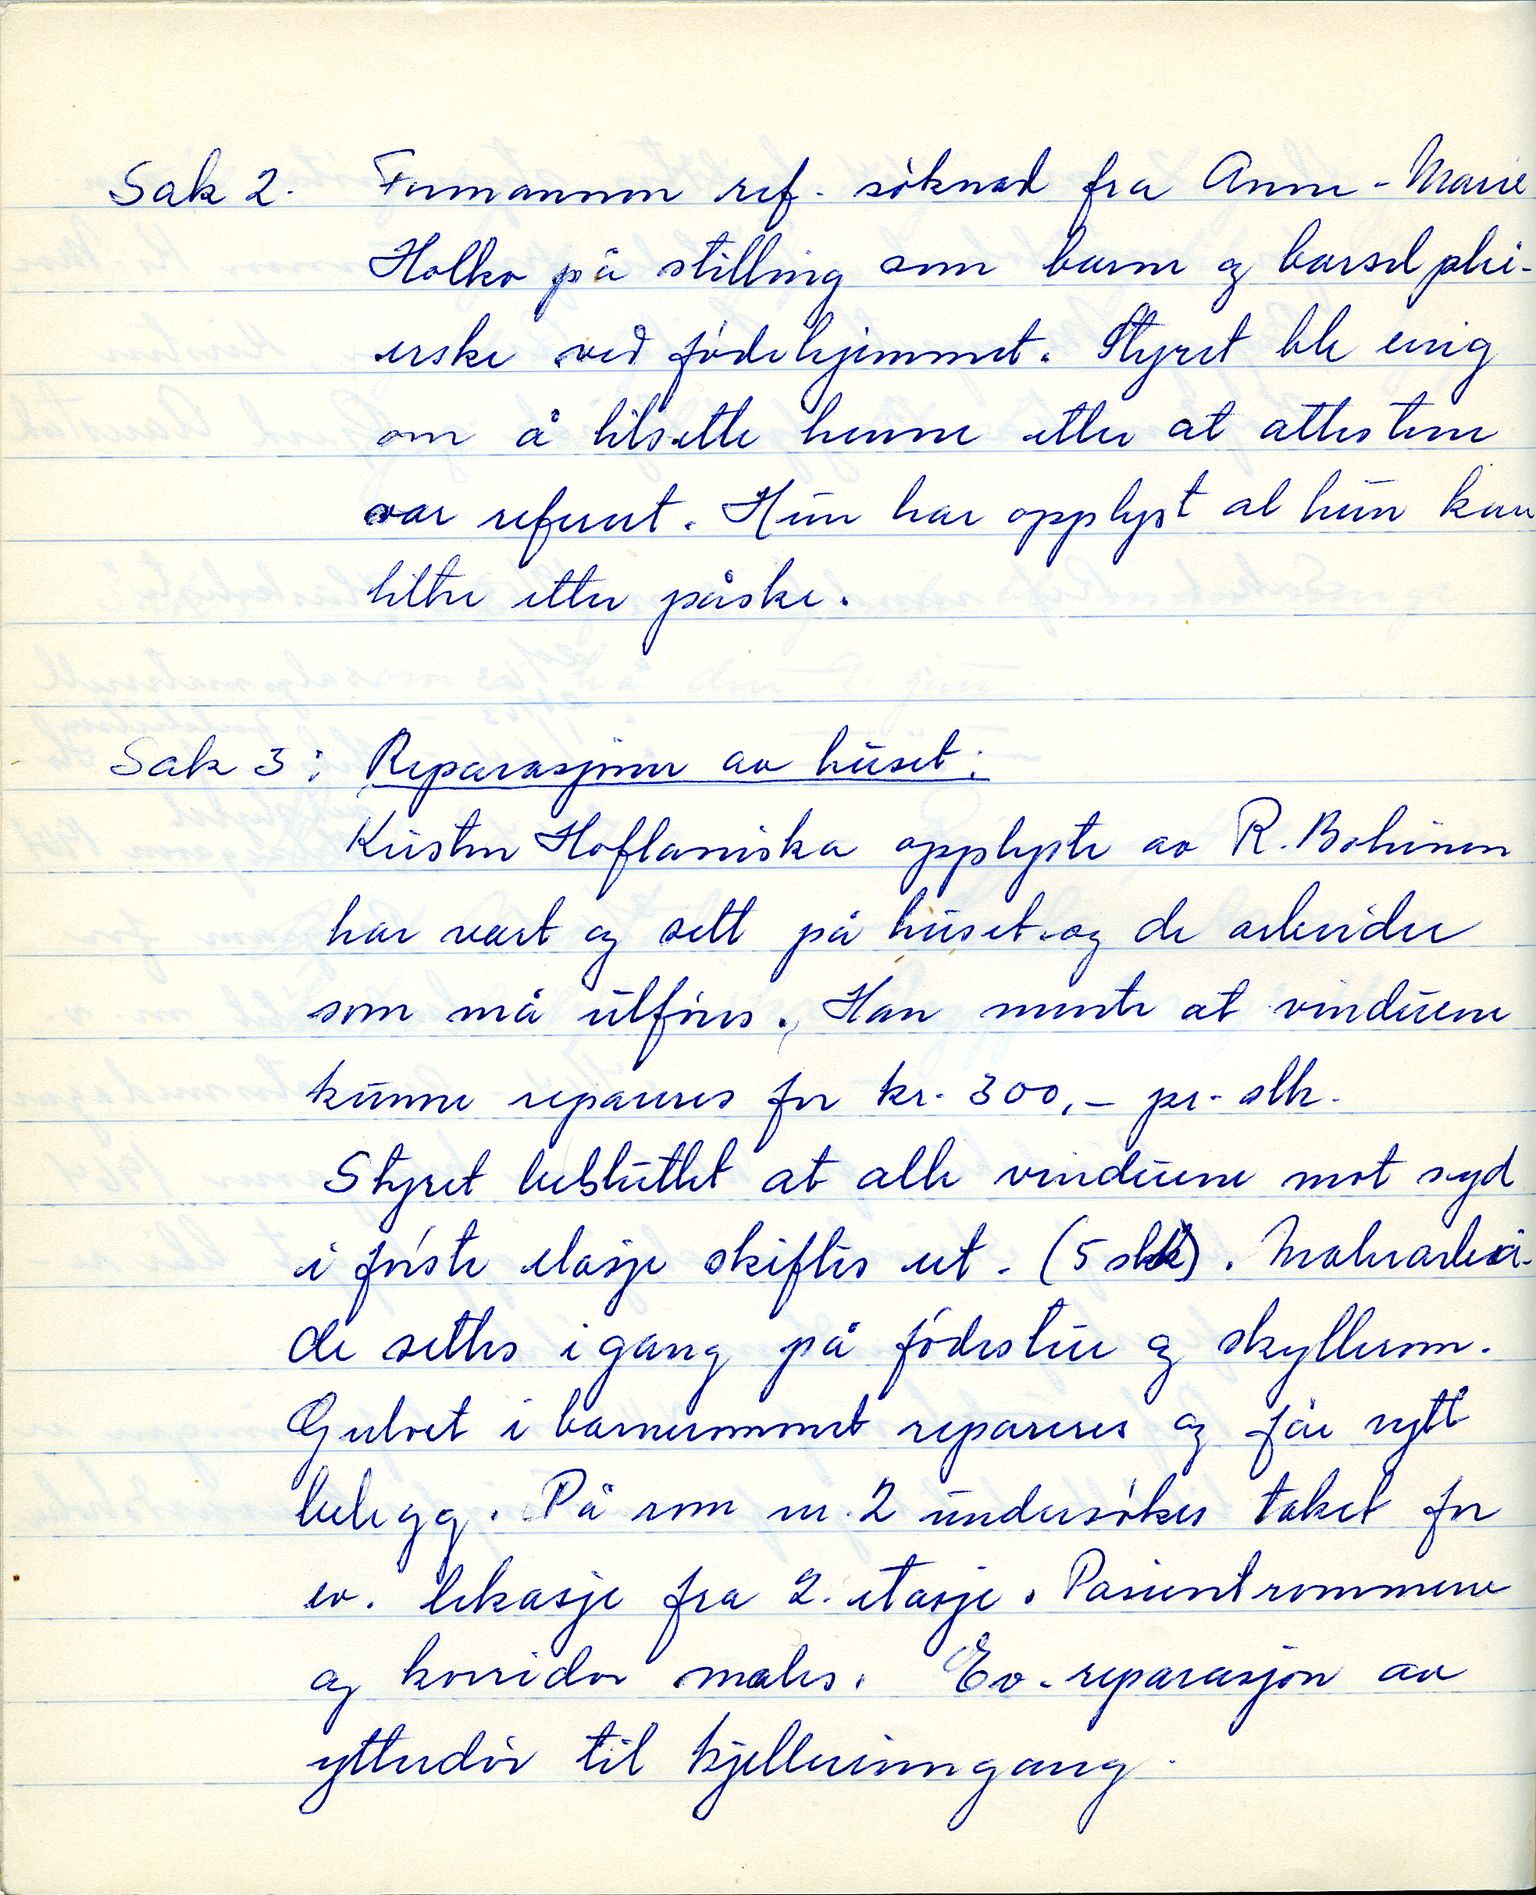 Sak 2. Formannen ref. søknad fra Anne-Marie
Holko på stilling som barne og barselplei-
erske ved fødehjemmet. Styret ble enig
om å tilsette henne etter at attestene
var referert. Hun har opplyst at hun kan
tiltre etter påske.
Sak 3: Reparasjoner av huset:
Kirsten Hoflaniska opplyste av R. Bohinen
har vært og sett på huset og de arbeider
som må utføres. Han mente at vinduene
kunne repareres for kr. 300,- pr. stk.
Styret besluttet at alle vinduene mot syd
i første etasje skiftes ut. (5 stk). Malerarbei-
de settes igang på fødestue og skyllerom.
Gulvet i barnerommet repareres og får nytt
belegg. På rom nr. 2 undersøkes taket for
ev. lekasje fra 2. etasje. Pasientrommene
og korridor males. Ev. reparasjon av
ytterdør til kjellerinngang.